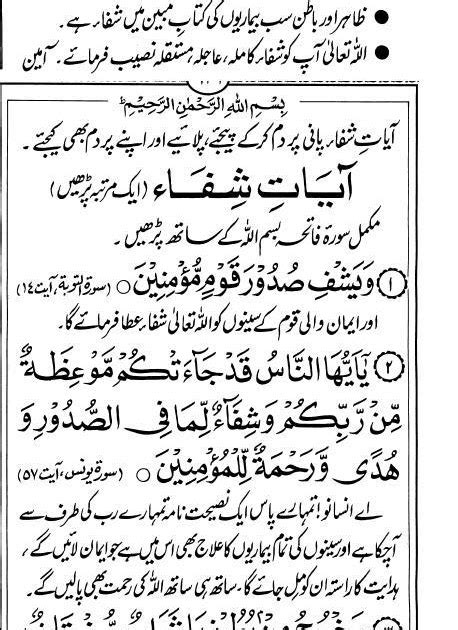 ● ظاہر اور باطن سب بیماریوں کی کتابِ مبین میں شفاء ہے۔
● اللہ تعالیٰ آپ کو شفاء کاملہ، عاجلہ، مستقلہ نصیب فرمائے۔ آمین
بِسْمِ اللهِ الرَّحْمٰنِ الرَّحِيْمِ
آیاتِ شفاء پانی پر دم کر کے پیجئے، پلائیے اور اپنے پر دم بھی کیجئے۔
آیَاتِ شِفَاء (ایک مرتبہ پڑھیں)
مکمل سورۃ فاتحہ بسم اللہ کے ساتھ پڑھیں۔
١ وَيَشْفِ صُدُوْرَ قَوْمٍ مُّؤْمِنِيْنَ ○ (سورۃ التوبۃ، آیت ۱۴)
اور ایمان والی قوم کے سینوں کو اللہ تعالیٰ شفاء عطا فرمائے گا۔
٢ يٰٓاَيُّهَا النَّاسُ قَدْ جَآءَتْكُمْ مَّوْعِظَةٌ
مِّنْ رَّبِّكُمْ وَشِفَآءٌ لِّمَا فِى الصُّدُوْرِ وَ
هُدًى وَّرَحْمَةٌ لِّلْمُؤْمِنِيْنَ ○ (سورۃ یونس، آیت ۵۷)
اے انسانو! تمہارے پاس ایک نصیحت نامہ تمہارے رب کی طرف سے
آچکا ہے اور سینوں کی تمام بیماریوں کا علاج بھی اس میں ہے جو ایمان لائیں گے،
ہدایت کا راستہ ان کو مل جائے گا، ساتھ ہی ساتھ اللہ کی رحمت بھی پالیں گے۔